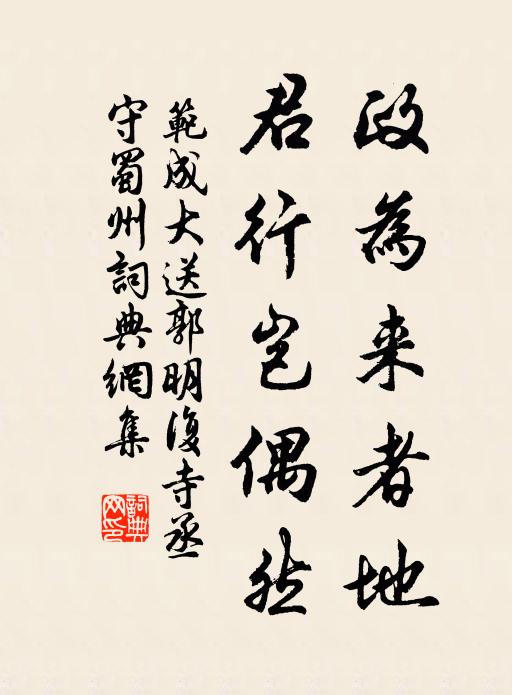 政為来者地
君行岂偶然
範成大送郭明復寺丞
守蜀州詞典網集
詞典
网印